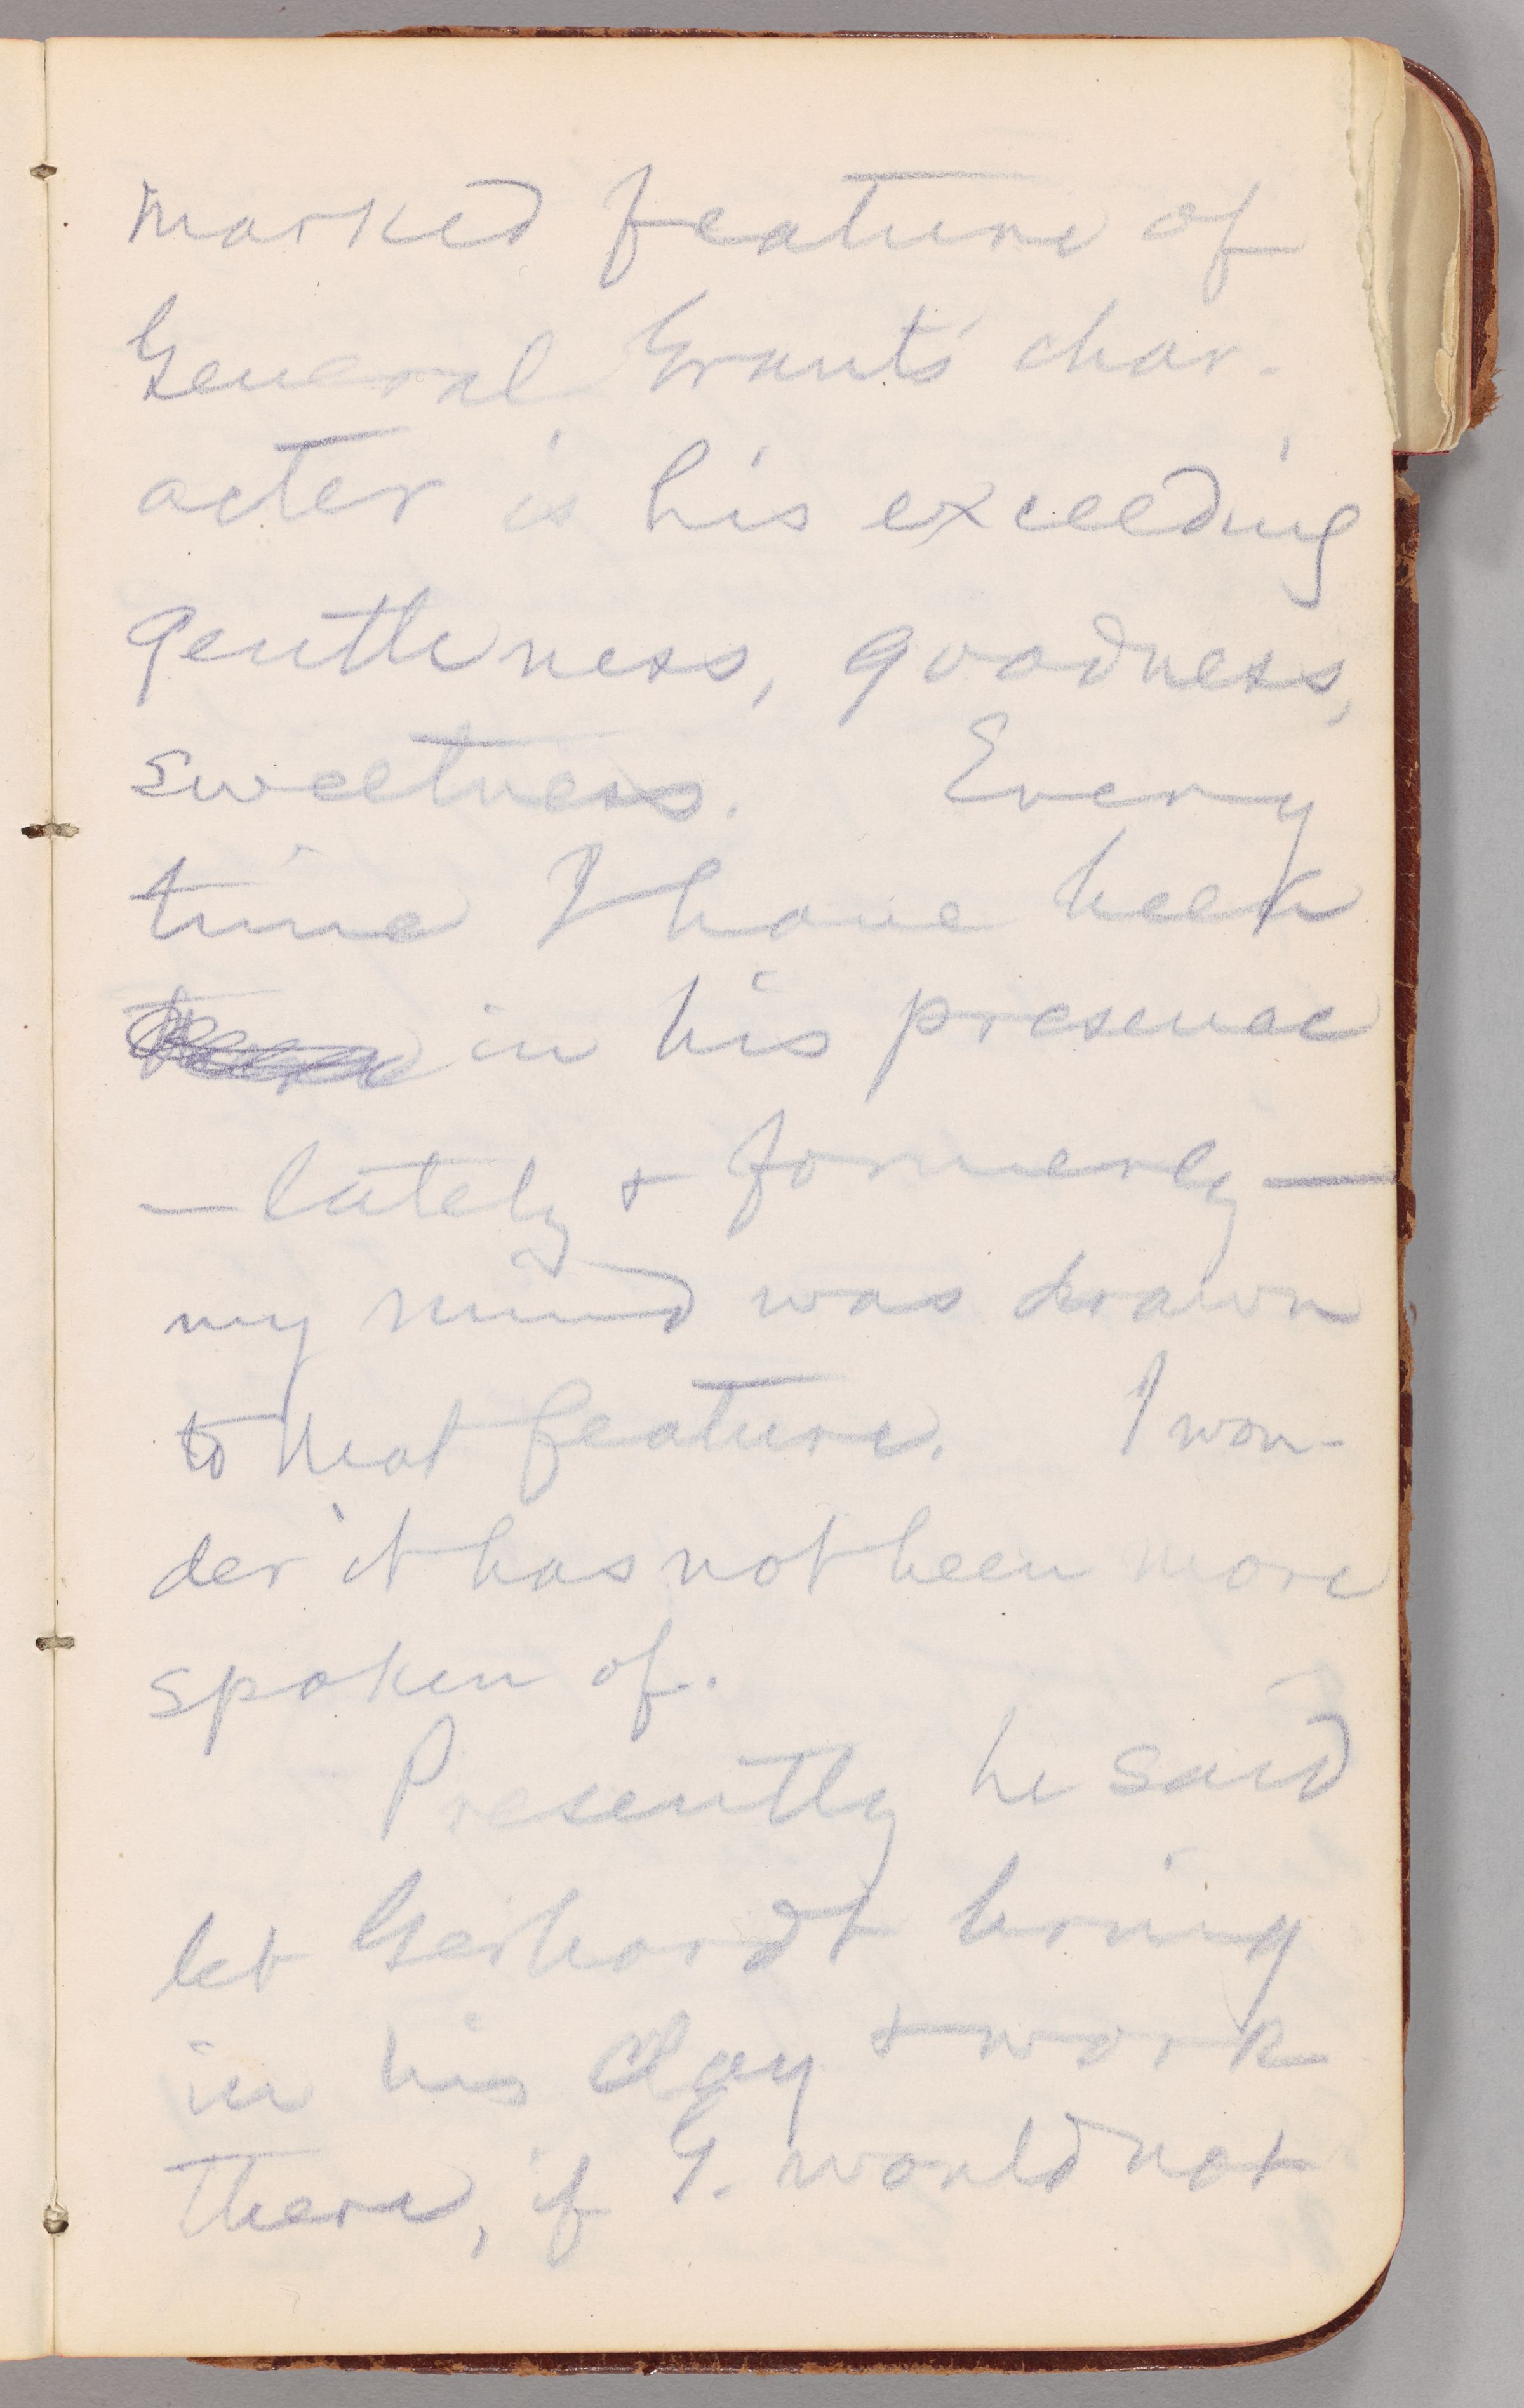 marked feature of
General Grant's char-
acter is his exceeding
gentleness, goodness,
sweetness. Every
time I have been
in his presence
— lately & formerly —
my mind was drawn
to that feature. I won-
der it has not been more
spoken of.
Presently he said
let Gerhardt bring
in his clay & work
there, if G. would not